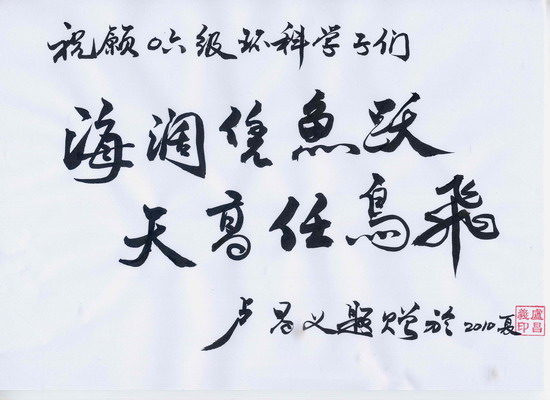 祝愿0六级环科学子们
海阔凭魚跃
天高任鸟飛
卢昌义题赠於2010夏
盧昌義印